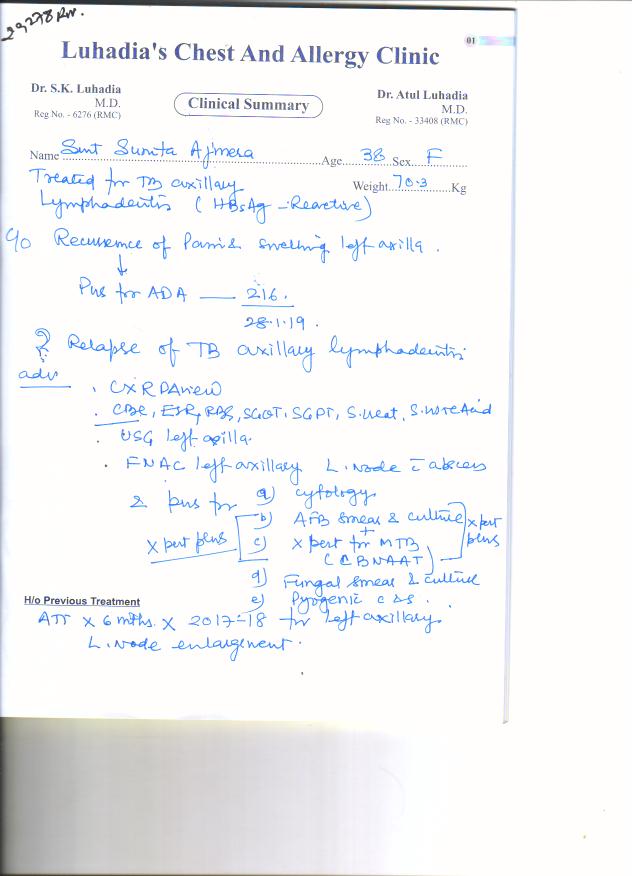 29278 Rm.
01
Luhadia's Chest And Allergy Clinic
Dr. S.K. Luhadia
M.D.
Reg No. - 6276 (RMC)
Clinical Summary
Dr. Atul Luhadia
M.D.
Reg No. - 33408 (RMC)
Name Smt Sunita Ajmera Age 38 Sex F
Treated for TB axillary Weight 70.3 Kg
Lymphadentis (HBsAg - Reactive)
C/o Recurrence of Pain & swelling left axilla.
↓
Pus for ADA — 216.
28.1.19.
? Relapse of TB axillary lymphadentis
adv
. CXR PA view
. CBC, ESR, RBS, SGOT, SGPT, S. Creat, S. Uric Acid
. USG left axilla.
. FNAC left axillary L. Node c̄ abscess
& pus for a) cytology
b) AFB smear & culture
+
Xpert plus c) Xpert for MTB Xpert plus
(CBNAAT)
d) Fungal smear & culture
e) Pyogenic c & s.
H/o Previous Treatment
ATT x 6 mths. x 2017-18 for left axillary
L. Node enlargement.